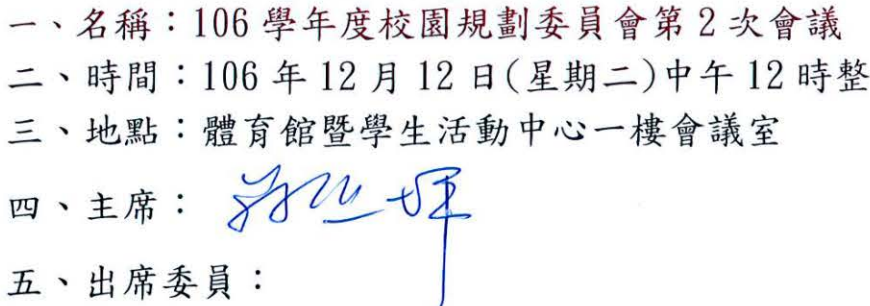 一、名稱：106 學年度校園規劃委員會第 2 次會議
二、時間：106 年 12 月 12 日(星期二)中午 12 時整
三、地點：體育館暨學生活動中心一樓會議室
四、主席：
五、出席委員：